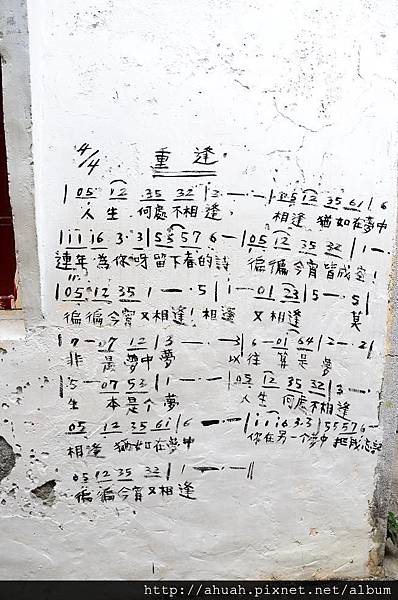 4/4 重逢
| 05 12 35 32 | 2 - · - · | 05 12 35 61 | 6
人生何處不相逢, 相逢猶如在夢中
| 1116 3·3 | 5557 6 - | 05 12 35 32 | 1 - ·
連年為你呀留下春的詩 偏偏今宵皆成空!
| 05 12 35 1 - · 5 | 1 - 01 23 | 5 - · 5 |
偏偏今宵又相逢! 相逢 又相逢 莫
| 7 - 07 12 | 3 · - · 3 | 6 - 01 64 | 2 - · 2 |
非是夢中夢 以往算是夢
| 5 - 07 53 | 1 - · - · | 05 12 35 32 | 3 - ·
生本是个夢 人生何處不相逢
05 12 35 61 | 6 - · - · | 1116 3·3 | 5557 6 -
相逢猶如在夢中 你在另一个夢中把我忘
05 12 35 32 | 1 - · - · ||
偏偏今宵又相逢
http://ahuah.pixnet.net/album